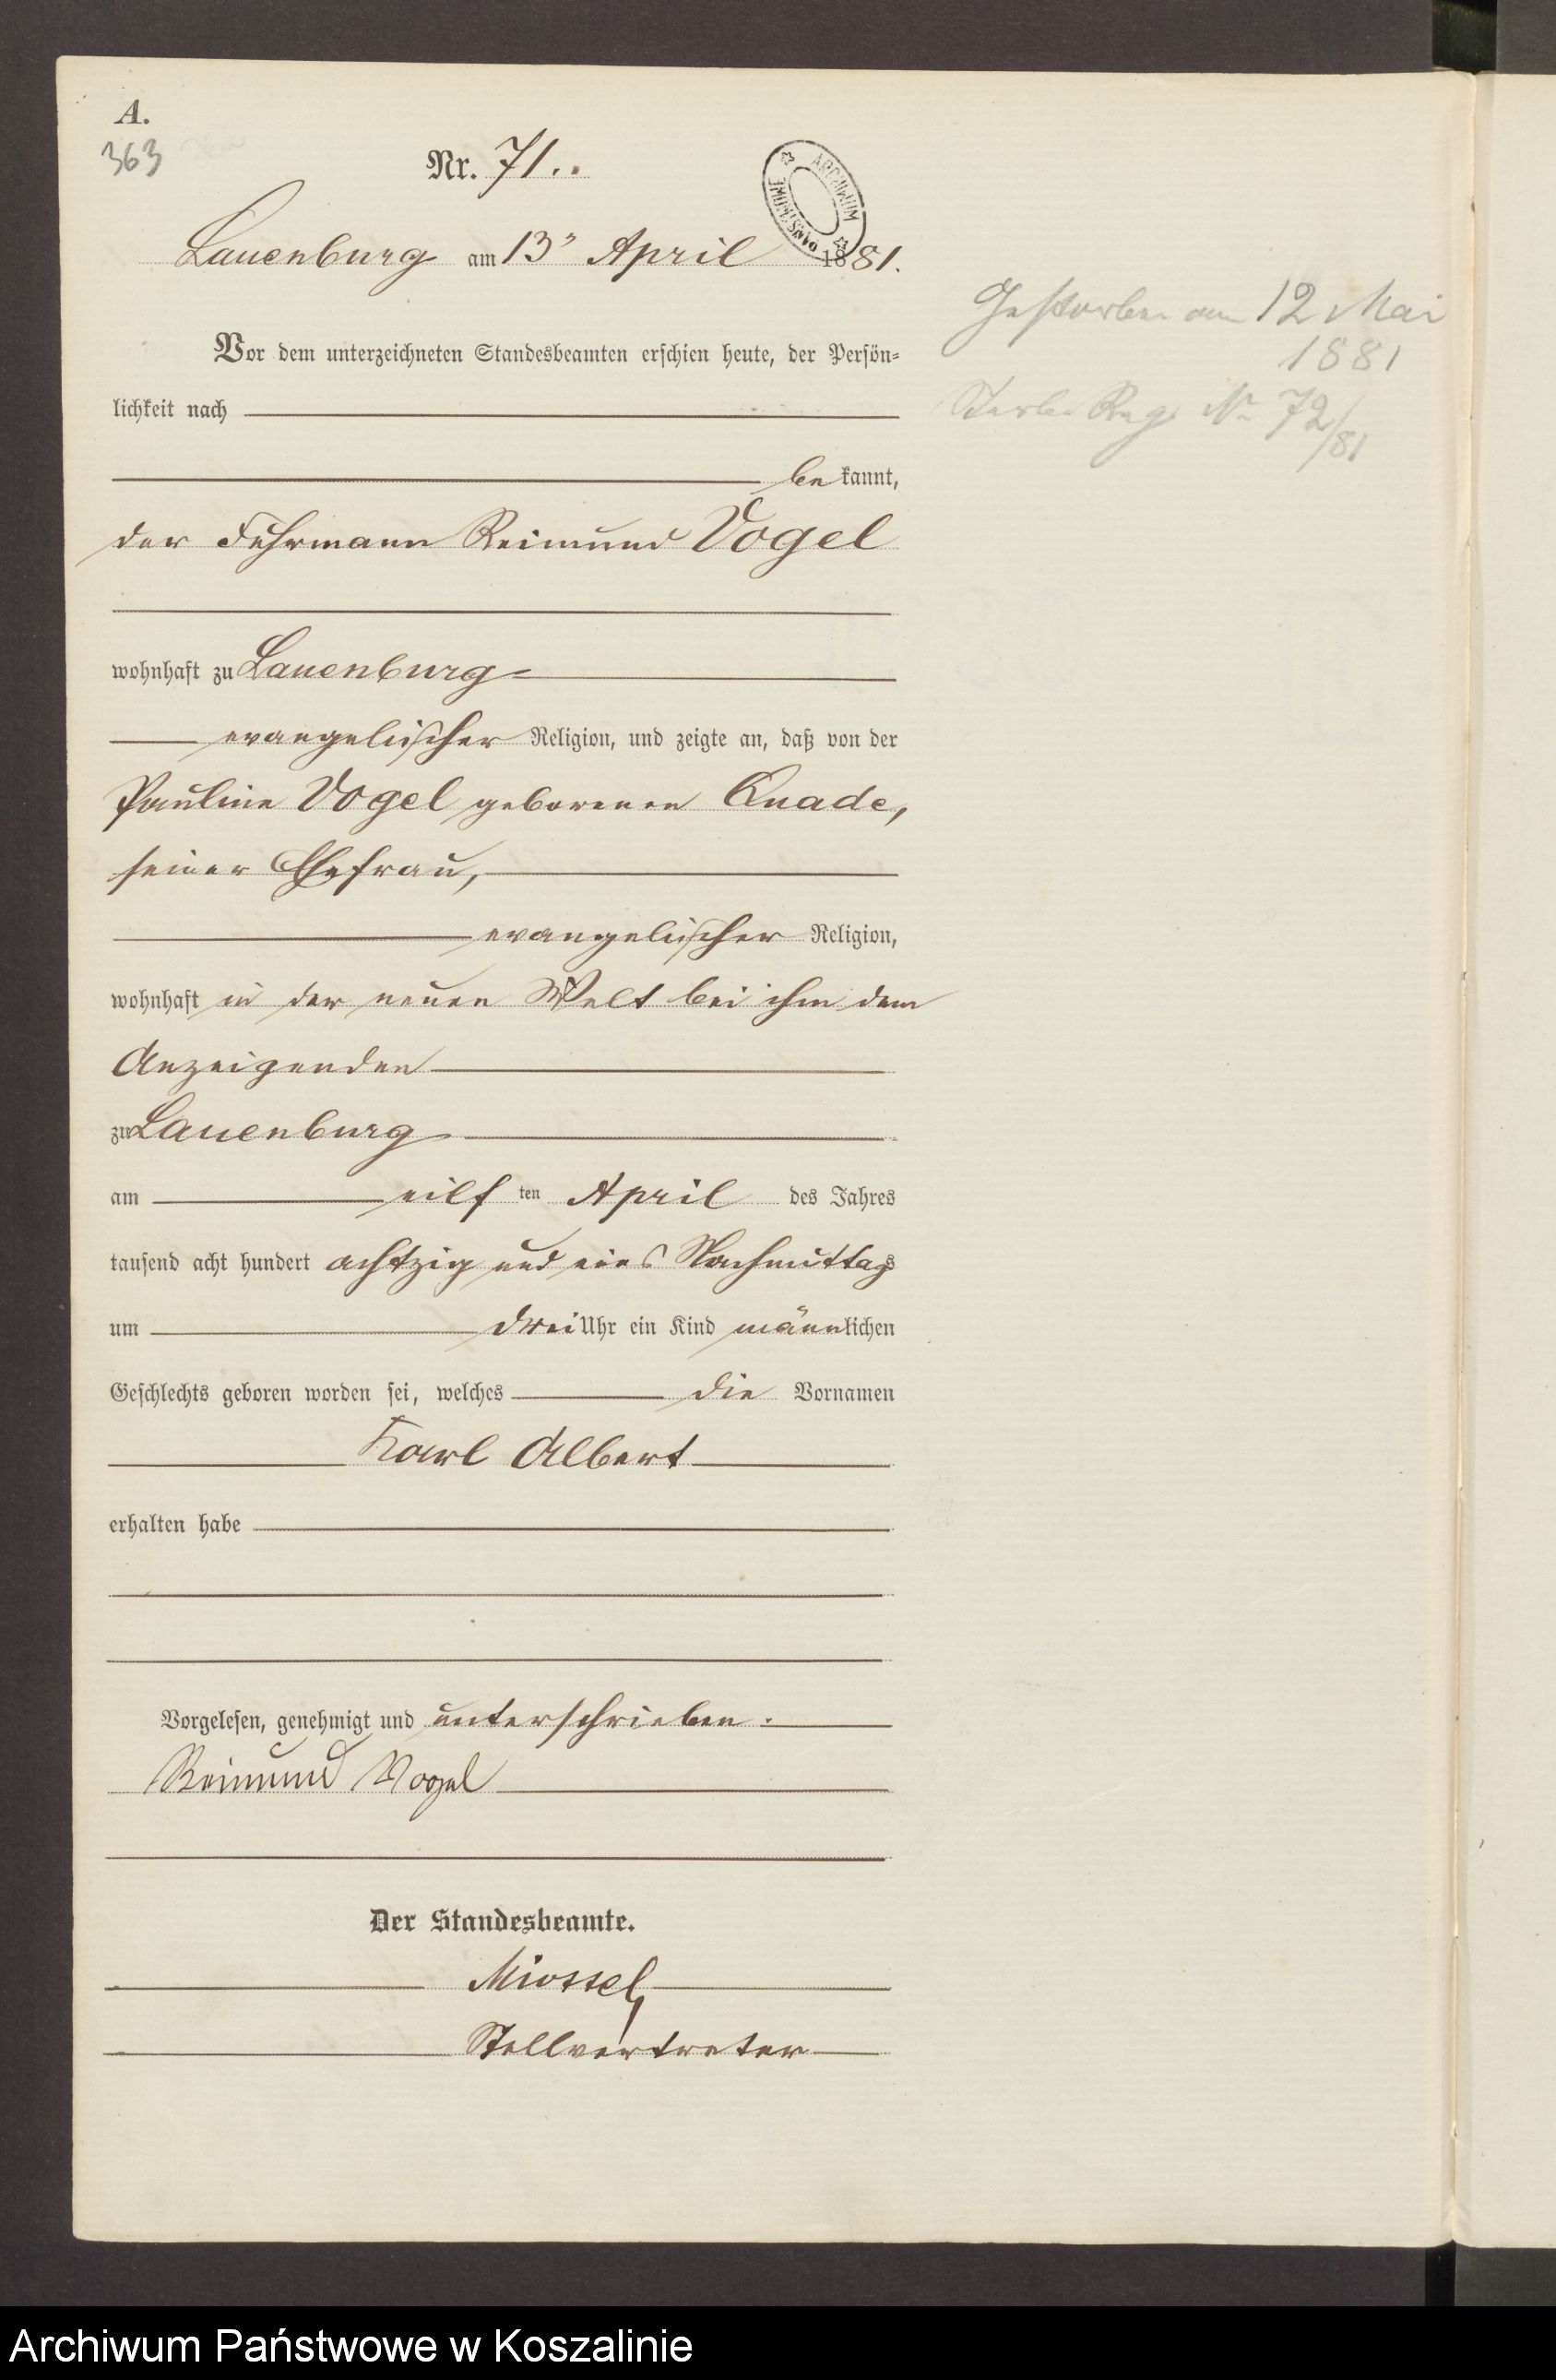 A.
363
Nr. 71.
ARCHIWUM PAŃSTWOWE
Lauenburg am 13ⁿ April 1881.
Gestorben am 12 Mai
1881
Sterbe Reg. No 72/81
Vor dem unterzeichneten Standesbeamten erschien heute, der Persön-
lichkeit nach
bekannt,
der Fuhrmann Reimund Vogel
wohnhaft zu Lauenburg
evangelischer Religion, und zeigte an, daß von der
Pauline Vogel geborenen Knade,
seiner Ehefrau,
evangelischer Religion,
wohnhaft in der neuen Welt bei ihm dem
Anzeigenden
zu Lauenburg
am eilften April des Jahres
tausend acht hundert achtzig und eins Nachmittags
um drei Uhr ein Kind männlichen
Geschlechts geboren worden sei, welches die Vornamen
Karl Albert
erhalten habe
Vorgelesen, genehmigt und unterschrieben.
Reimund Vogel
Der Standesbeamte.
Stellvertreter
Archiwum Państwowe w Koszalinie